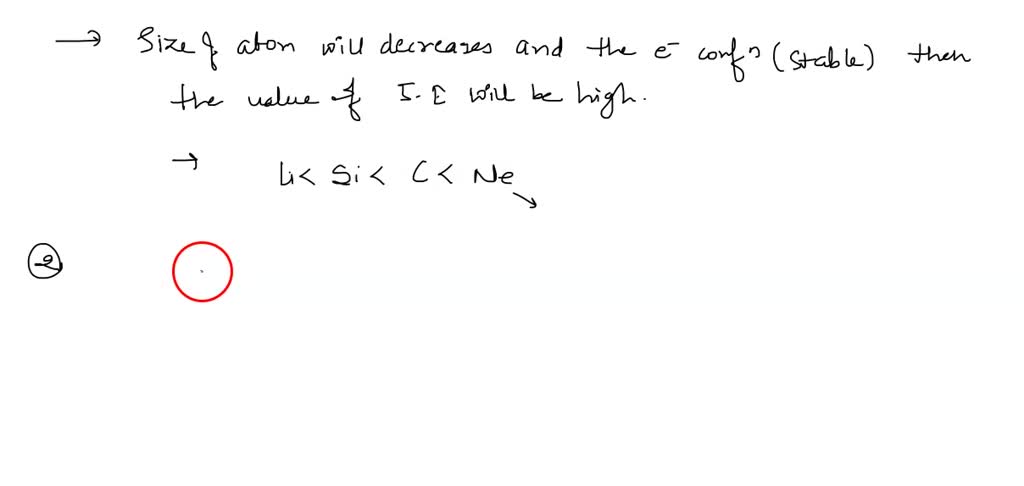 → Size of atom will decreases and the e⁻ confⁿ (stable) then
the value of I.E will be high.
→ Li < Si < C < Ne
②